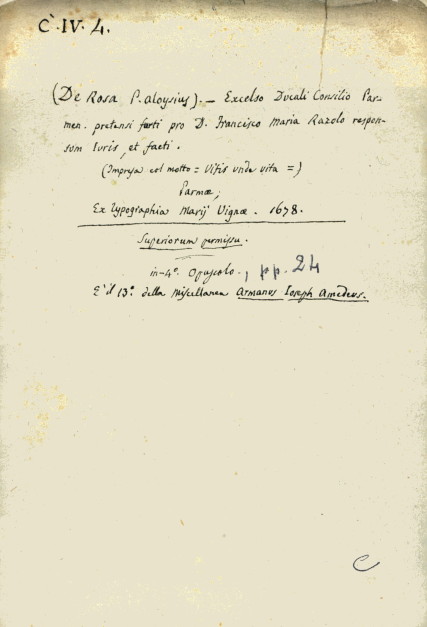 C. IV. 4.
(De Rosa P. Aloysius). — Excelso Ducali Consilio Par-
men. pretensi furti pro D. Francisco Maria Razolo respon-
som Iuris, et facti.
(Impresa col motto = Vitis unde vita =)
Parmæ,
Ex typographia Marij Vignæ. 1678.
Superiorum permissu.
in-4°. Opuscolo., pp. 24
E' il 13° della Miscellanea Armanus Ioseph Amedeus.
C